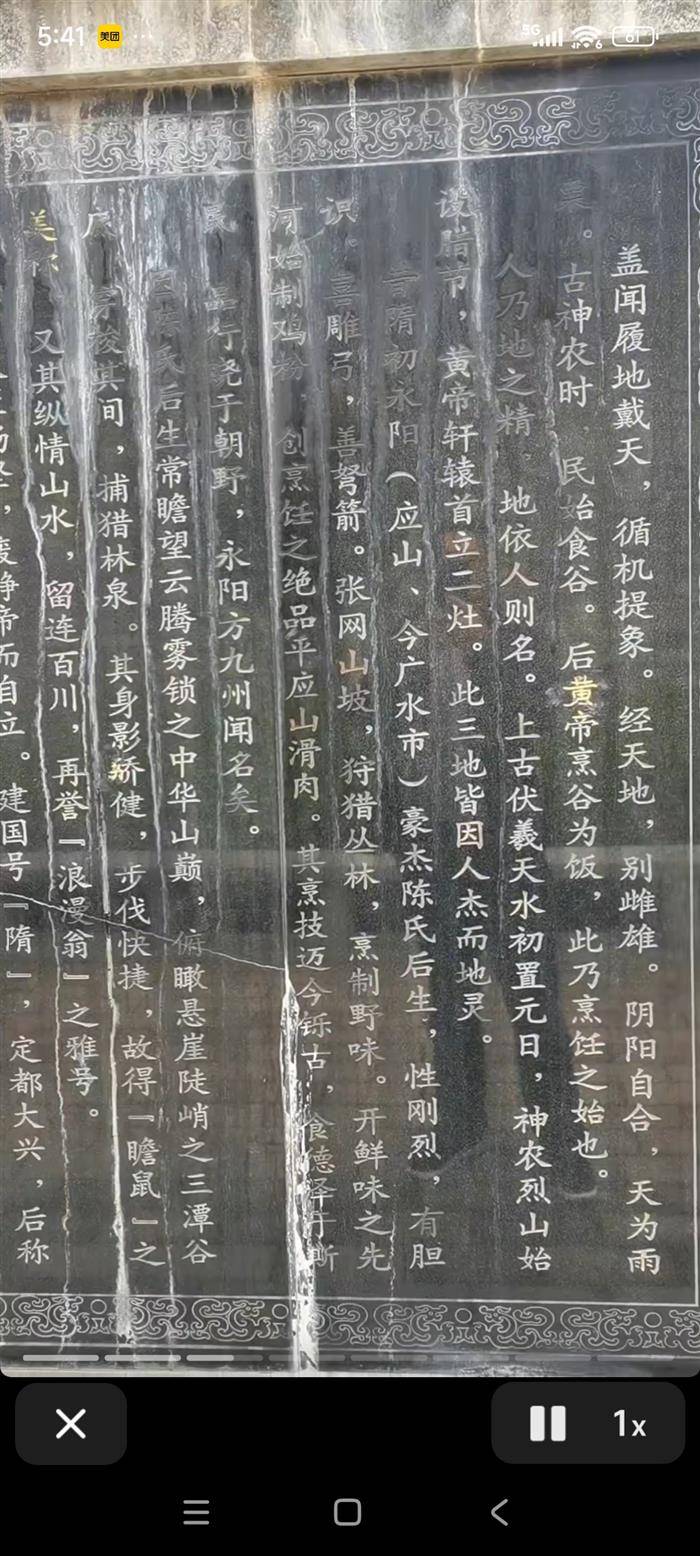 5:41 美团 ... 5G 6 61
盖闻履地戴天，循机提象。经天地，别雌雄。阴阳自合，天为雨
。古神农时，民始食谷。后黄帝烹谷为饭，此乃烹饪之始也。
人乃地之精，地依人则名。上古伏羲天水初置元日，神农烈山始
设腊节，黄帝轩辕首立二灶。此三地皆因人杰而地灵。
昔隋初永阳（应山、今广水市）豪杰陈氏后生，性刚烈，有胆
识。喜雕弓，善弩箭。张网山坡，狩猎丛林，烹制野味。开鲜味之先
河始制鸡，创烹饪之绝品平应山滑肉。其烹技迈今铄古，食德泽于斯
行于朝野，永阳方九州闻名矣。
氏后生常瞻望云腾雾锁之中华山巅，俯瞰悬崖陡峭之三潭谷
其间，捕猎林泉。其身影矫健，步伐快捷，故得『瞻鼠』之
美
又其纵情山水，留连百川，再誉『浪漫翁』之雅号。
帝而自立。建国号『隋』，定都大兴，后称
1x